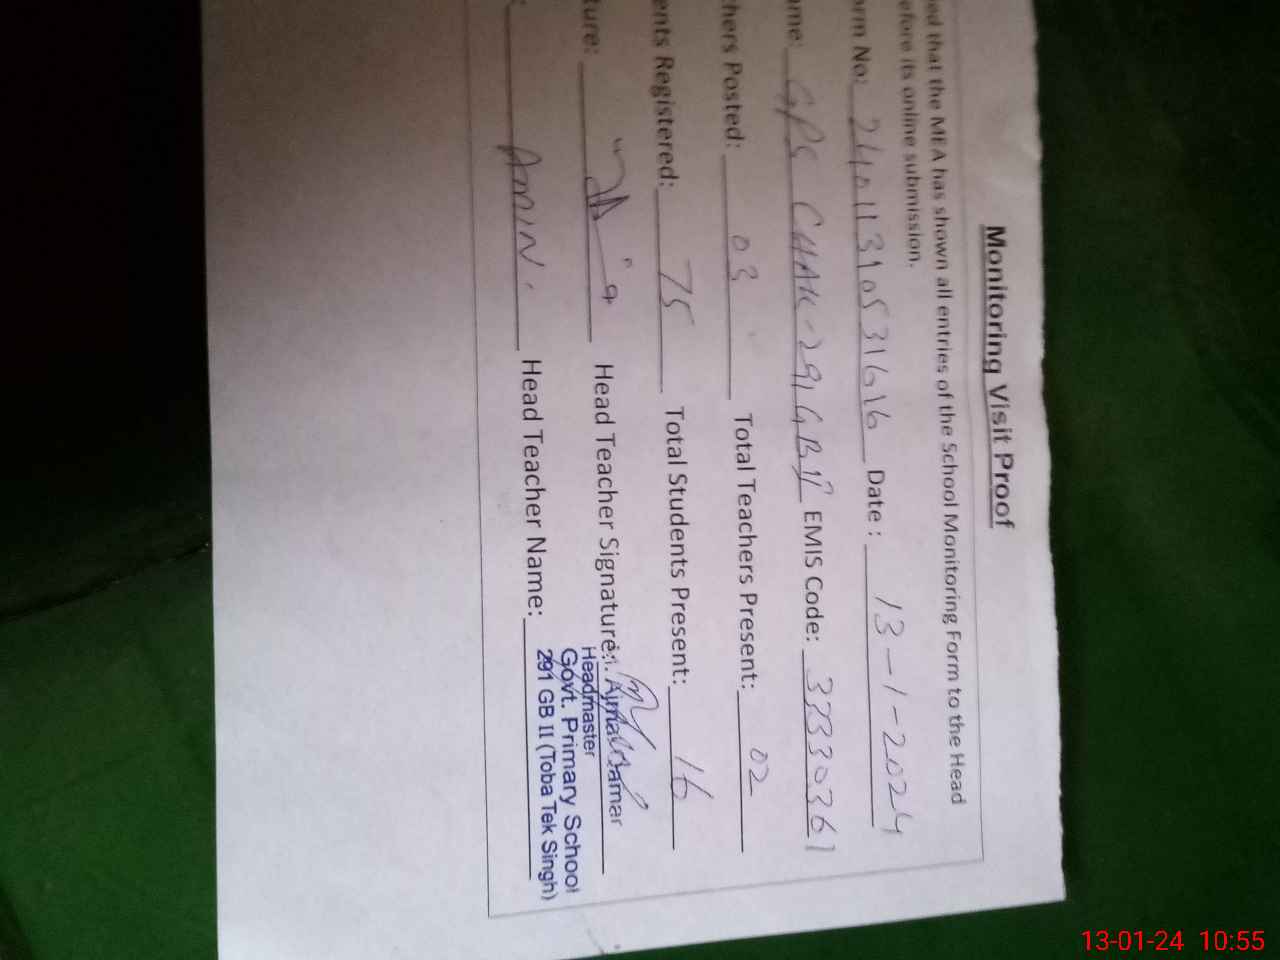 Monitoring Visit Proof
ied that the MEA has shown all entries of the School Monitoring Form to the Head
efore its online submission.
orm No: 24011310531616 Date : 13-1-2024
ame: GPS CHAK-291GB II EMIS Code: 37330361
hers Posted: 03 Total Teachers Present: 02
ents Registered: 75 Total Students Present: 16
ture: Head Teacher Signature:
: AMIN. Head Teacher Name:
Headmaster
Govt. Primary School
291 GB II (Toba Tek Singh)
13-01-24 10:55